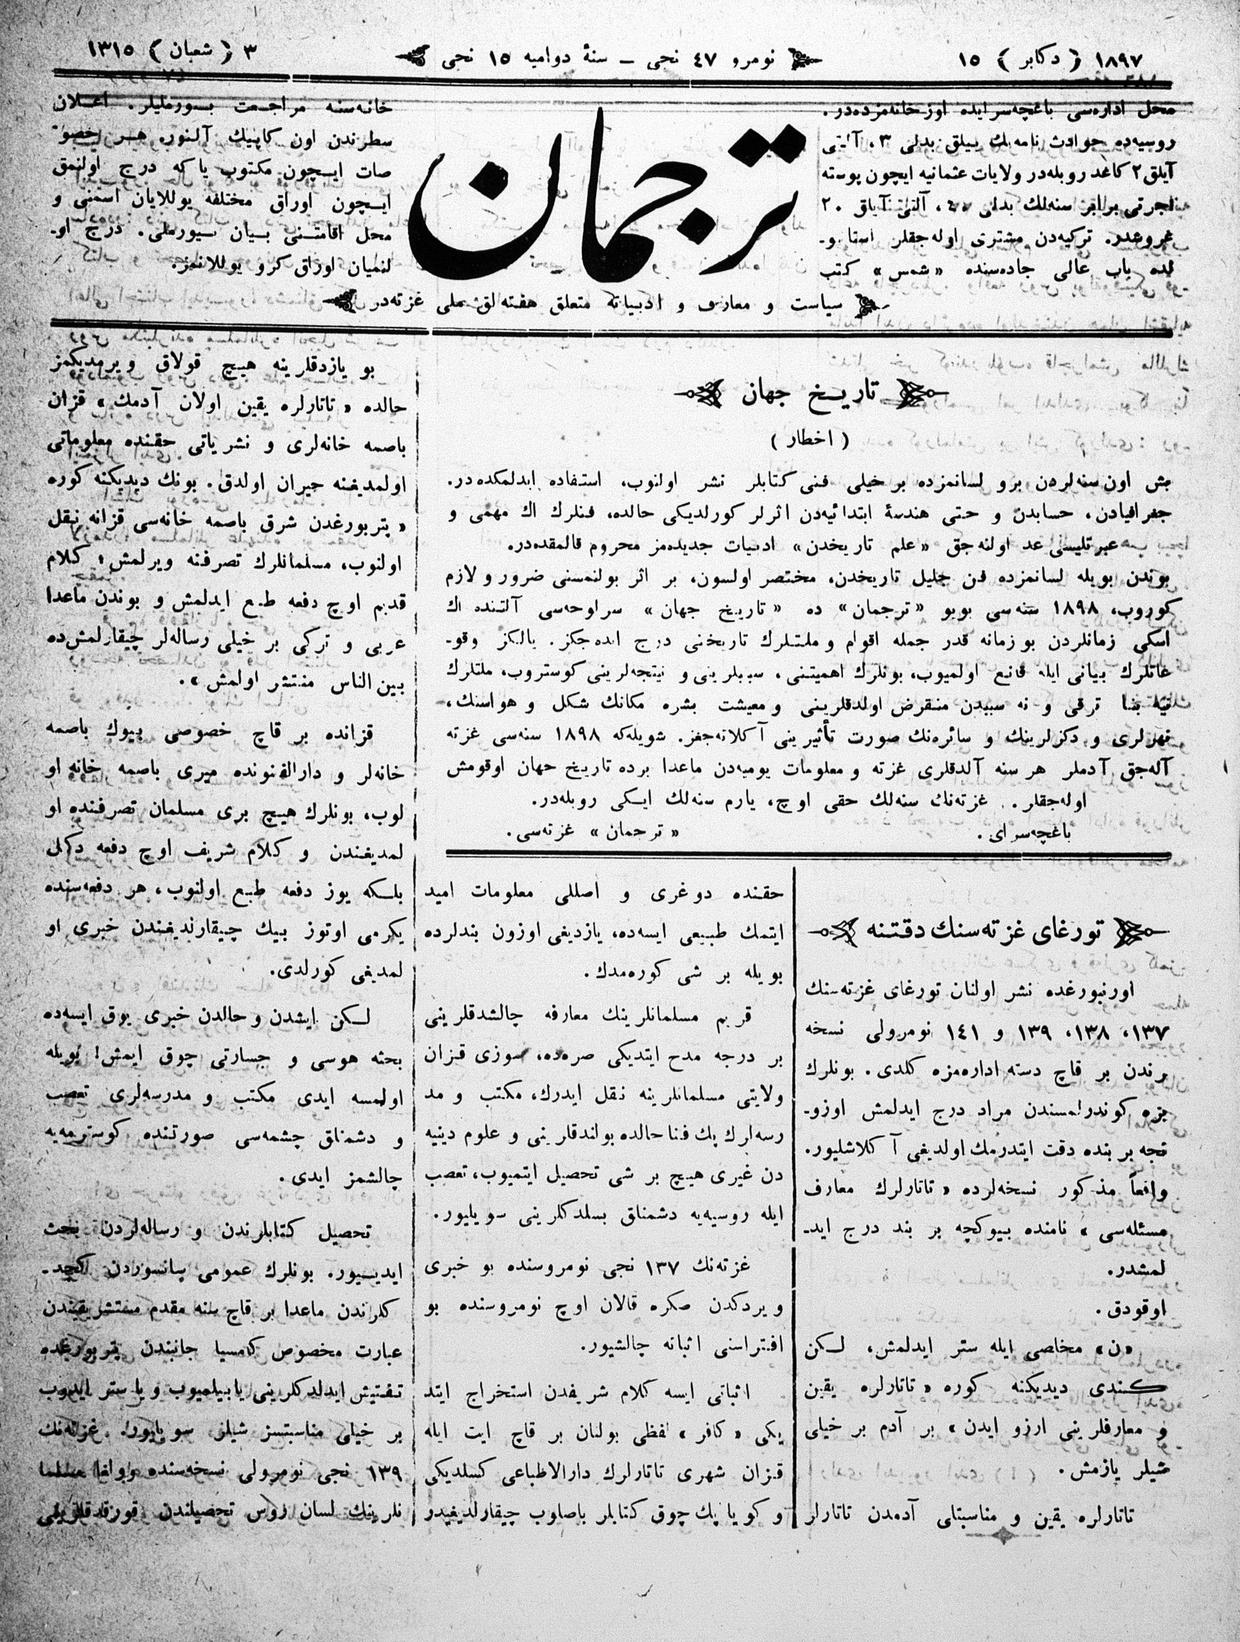 ١٨٩٧ ﴿ دكابر ﴾ ١٥
نومرو ٤٧ نجى ــ سنۀ دواميه ١٥ نجى
٣ ﴿ شعبان ﴾ ١٣١٥
محل اداره‌سى باغچه‌سرايده اوز خانه‌مزده‌در.
روسيه‌ده حوادث نامه‌نك ييللق بدلى ٣، آلتى
آيلق ٢ كاغد روبله‌در ولايات عثمانيه ايچون پوسته
اجرتى برابر سنه‌لك بدلى ٤٠، آلتى آيلق ٢٠
غروشدر. تركيه‌دن مشترى اوله‌جقلر استانبو-
لده باب عالى جاده‌سنده «شمس» كتب
خانه‌سنه مراجعت بيورمليلر. اعلان
سطرندن اون كاپيك آلنور. هر خصو-
صات ايچون مكتوب ياكه درج اولنمق
ايچون اوراق مختلفه يوللايان اسمنى و
محل اقامتنى بيان بيورملى. درج او-
لنميان اوراق كرو يوللانمز.
ترجمان
سياست و معارف و ادبياته متعلق هفته‌لق ملى غزته‌در
تاريخ جهان
( اخطار )
بش اون سنه‌لردن برو لسانمزده بر خيلى فنى كتابلر نشر اولنوب، استفاده ايدلمكده‌در.
جغرافيادن، حسابدن و حتى هندسۀ ابتدائيه‌دن اثرلر كورلديكى حالده، فنلرك اك مهمى و
عبرتليسى عد اولنه‌جق «علم تاريخدن» ادبيات جديده‌مز محروم قالمقده‌در.
بوندن بويله لسانمزده فن جليل تاريخدن، مختصر اولسون، بر اثر بولنمسنى ضرور و لازم
كوروب، ١٨٩٨ سنه‌سى بويو «ترجمان» ده «تاريخ جهان» سراوحه‌سى آلتنده اك
اسكى زمانلردن بو زمانه قدر جمله اقوام و ملتلرك تاريخنى درج ايده‌جكز. يالكز وقو-
عاتلرك بيانى ايله قانع اولميوب، بونلرك اهميتنى، سببلرينى و نتيجه‌لرينى كوستروب، ملتلرك
نيه بنا ترقى و نه سببدن منقرض اولدقلرينى و معيشت بشره مكانك شكل و هواسنك،
نهرلرى و دكزلرينك و سائره‌نك صورت تأثيرينى آكلاته‌جغز. شويله‌كه ١٨٩٨ سنه‌سى غزته
آله‌جق آدملر هر سنه آلدقلرى غزته و معلومات يوميه‌دن ماعدا برده تاريخ جهان اوقومش
اوله‌جقلر. غزته‌نك سنه‌لك حقى اوچ، يارم سنه‌لك ايكى روبله‌در.
باغچه‌سراى. «ترجمان» غزته‌سى.
تورغاى غزته‌سنك دقتنه
اورنبورغده نشر اولنان تورغاى غزته‌سنك
١٣٧، ١٣٨، ١٣٩ و ١٤١ نومرولى نسخه
برندن بر قاچ دسته اداره‌مزه كلدى. بونلرك
بزه كوندرلمسندن مراد درج ايدلمش اوزو-
نجه بر بنده دقت ايتدرمك اولديغى آكلاشليور.
واقعاً مذكور نسخه‌لرده «تاتارلرك معارف
مسئله‌سى» نامنده بيوكچه بر بند درج ايد-
لمشدر.
اوقودق.
«ن» مخلصى ايله ستر ايدلمش، لكن
كندى ديديكنه كوره «تاتارلره يقين
و معارفلرينى ارزو ايدن» بر آدم بر خيلى
شيلر يازمش.
تاتارلره يقين و مناسبتلى آدمدن تاتارلر
حقنده دوغرى و اصللى معلومات اميد
ايتمك طبيعى ايسه‌ده، يازديغى اوزون بندلرده
بويله بر شى كوره‌مدك.
قريم مسلمانلرينك معارفه چالشدقلرينى
بر درجه مدح ايتديكى صره‌ده، سوزى قزان
ولايتى مسلمانلرينه نقل ايدرك، مكتب و مد
رسه‌لرك پك فنا حالده بولندقلرينى و علوم دينيه
دن غيرى هيچ بر شى تحصيل ايتميوب، تعصب
ايله روسيه‌يه دشمنلق بسلدكلرينى سويليور.
غزته‌نك ١٣٧ نجى نومروسنده بو خبرى
ويردكدن صكره قالان اوچ نومروسنده بو
افتراسنى اثباته چالشيور.
اثباتى ايسه كلام شريفدن استخراج ايتد
يكى «كافر» لفظى بولنان بر قاچ ايت ايله
قزان شهرى تاتارلرك دارالاطباعى كسلديكى
و كويا پك چوق كتابلر باصلوب چيقارلديغيدر
بو يازدقلرينه هيچ قولاق ويرمديكمز
حالده «تاتارلره يقين اولان آدمك» قزان
باصمه خانه‌لرى و نشرياتى حقنده معلوماتى
اولمديغنه حيران اولدق. بونك ديديكنه كوره
«پتربورغدن شرق باصمه خانه‌سى قزانه نقل
اولنوب، مسلمانلرك تصرفنه ويرلمش؛ كلام
قديم اوچ دفعه طبع ايدلمش و بوندن ماعدا
عربى و تركى بر خيلى رساله‌لر چيقارلمش‌ده
بين الناس منتشر اولمش».
قزانده بر قاچ خصوصى بيوك باصمه
خانه‌لر و دارالفنونده ميرى باصمه خانه او
لوب، بونلرك هيچ برى مسلمان تصرفنده او
لمديغندن و كلام شريف اوچ دفعه دكلى
بلكه يوز دفعه طبع اولنوب، هر دفعه‌سنده
يكرمى اوتوز بيك چيقارلديغندن خبرى او
لمديغى كورلدى.
لكن ايشدن و حالدن خبرى يوق ايسه‌ده
بحثه هوسى و جسارتى چوق ايمش! بويله
اولمسه ايدى مكتب و مدرسه‌لرى تعصب
و دشمنلق چشمه‌سى صورتنده كوسترمه‌يه
چالشمز ايدى.
تحصيل كتابلرندن و رساله‌لردن بحث
ايديسور. بونلرك عمومى سانسوردن كچد-
كلرندن ماعدا بر قاچ سنه مقدم مستشرقيندن
عبارت مخصوص كامسيا جانبندن پتربورغده
تفتيش ايدلدكلرينى يا بيلميوب و يا ستر ايدوب
بر خيلى مناسبتسز شيلر سويليور! غزته‌نك
١٣٩ نجى نومرولى نسخه‌سنده مسلما
نلرينك لسان روس تحصيلندن قورقدقلرينى